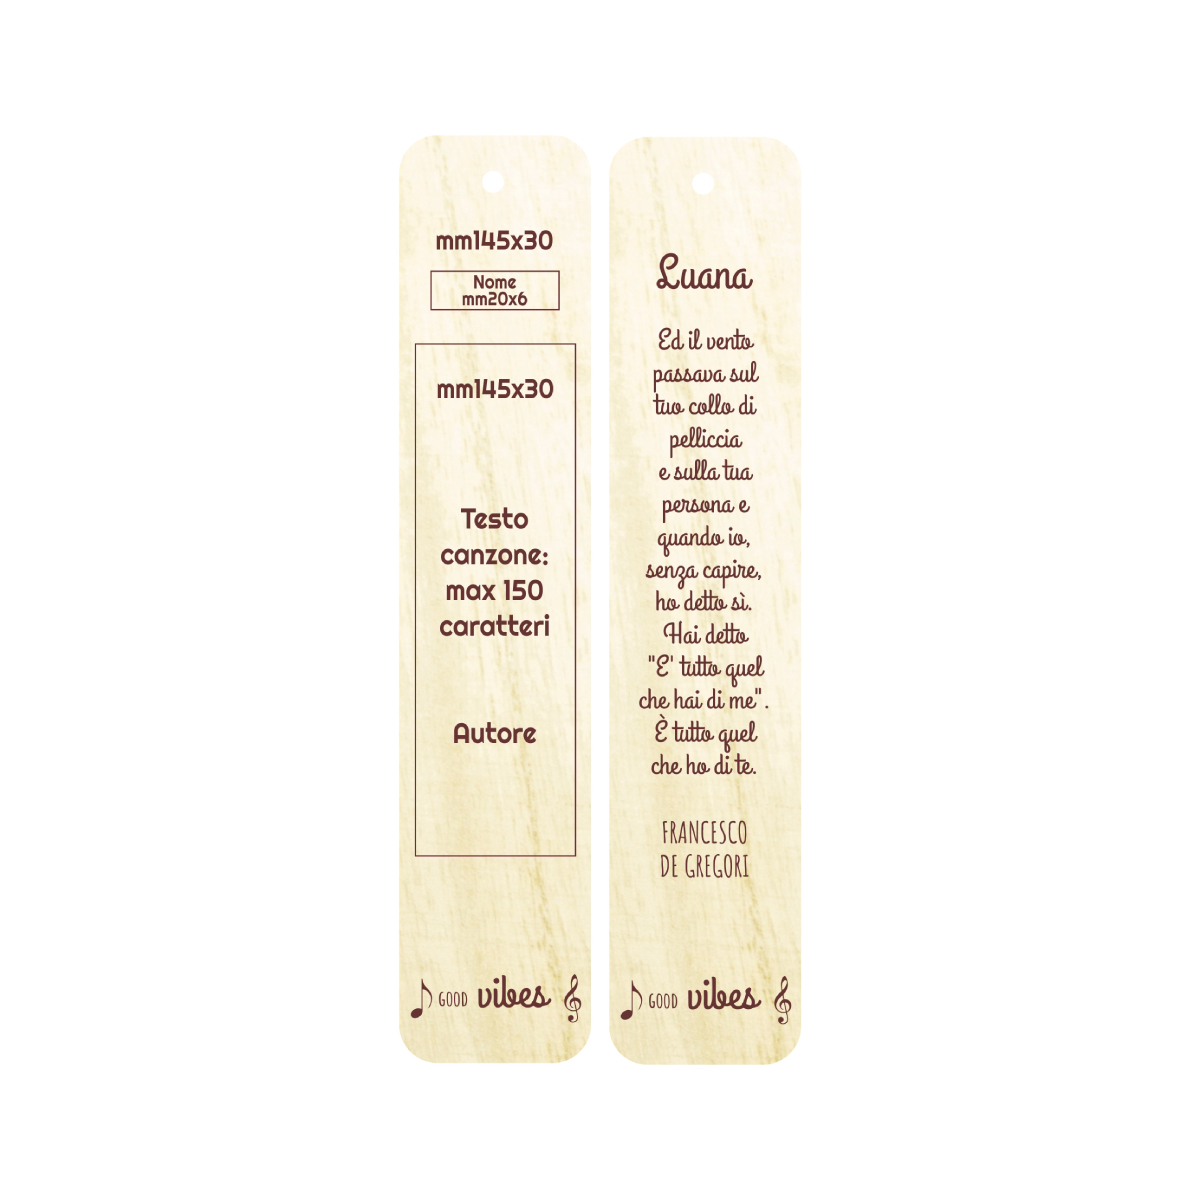 mm145x30
Nome
mm20x6
mm145x30
Testo
canzone:
max 150
caratteri
Autore
GOOD vibes
Luana
Ed il vento
passava sul
tuo collo di
pelliccia
e sulla tua
persona e
quando io,
senza capire,
ho detto sì.
Hai detto
"E' tutto quel
che hai di me".
È tutto quel
che ho di te.
FRANCESCO
DE GREGORI
GOOD vibes